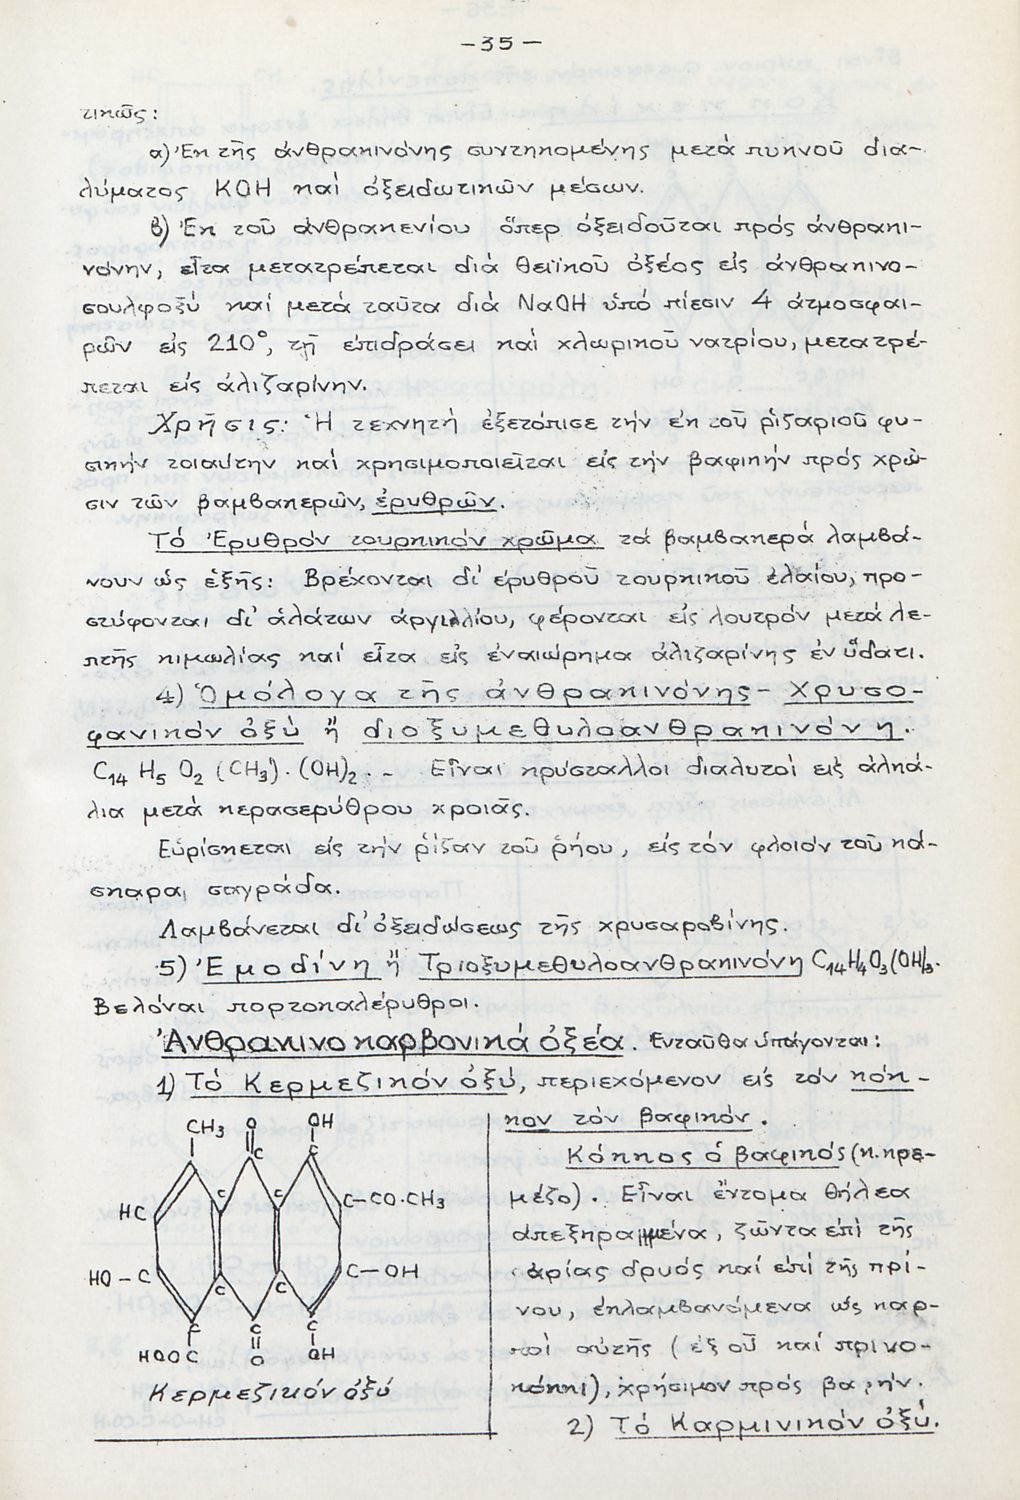 -35-
τικῶς:
α) Ἐκ τῆς ἀνθρακινόνης συντηκομένης μετά πυκνοῦ δια-
λύματος ΚΟΗ καί ὀξειδωτικῶν μέσων.
β) Ἐκ τοῦ ἀνθρακενίου ὅπερ ὀξειδοῦται πρός ἀνθρακι-
νόνην, εἶτα μετατρέπεται διά θειϊκοῦ ὀξέος εἰς ἀνθρακινο-
σουλφοξύ καί μετά ταῦτα διά NaOH ὑπό πίεσιν 4 ἀτμοσφαι-
ρῶν εἰς 210°, τῇ ἐπιδράσει καί χλωρικοῦ νατρίου, μετατρέ-
πεται εἰς ἀλιζαρίνην.
Χρῆσις: Ἡ τεχνητή ἐξετόπισε τήν ἐκ τοῦ ῥιζαριοῦ φυ-
σικήν τοιαύτην καί χρησιμοποιεῖται εἰς τήν βαφικήν πρός χρῶ-
σιν τῶν βαμβακερῶν, ἐρυθρῶν.
Τό Ἐρυθρόν τουρκικόν χρῶμα τά βαμβακερά λαμβά-
νουν ὡς ἑξῆς: Βρέχονται δι' ἐρυθροῦ τουρκικοῦ ἐλαίου, προ-
στύφονται δι' ἁλάτων ἀργιλλίου, φέρονται εἰς λουτρόν μετά λε-
πτῆς κιμωλίας καί εἶτα εἰς ἐναιώρημα ἀλιζαρίνης ἐν ὕδατι.
4) Ὁμόλογα τῆς ἀνθρακινόνης - Χρυσο-
φανικόν ὀξύ ἤ διοξυμεθυλοανθρακινόνη.
C14 H5 O2 (CH3).(OH)2.- Εἶναι κρύσταλλοι διαλυτοί εἰς ἀλκά-
λια μετά κερασερύθρου χροιᾶς.
Εὑρίσκεται εἰς τήν ῥίζαν τοῦ ῥήου, εἰς τόν φλοιόν τοῦ κά-
σκαρα, σαγράδα.
Λαμβάνεται δι' ὀξειδώσεως τῆς χρυσαροβίνης.
5) Ἐμοδίνη ἤ Τριοξυμεθυλοανθρακινόνη C14H4O3(OH)3.
Βελόναι πορτοκαλέρυθροι.
Ἀνθρακινοκαρβονικά ὀξέα. Ἐνταῦθα ὑπάγονται:
1) Τό Κερμεζικόν ὀξύ, περιεχόμενον εἰς τόν κόκ-
κον τόν βαφικόν.
Κόκκος ὁ βαφικός (κ. κρε-
μέζο). Εἶναι ἔντομα θήλεα
ἀπεξηραμμένα, ζῶντα ἐπί τῆς
ἀρίας δρυός καί ἐπί τῆς πρί-
νου, ἐκλαμβανόμενα ὡς καρ-
ποί αὐτῆς (ἐξ οὗ καί πρινο-
κόκκι), χρήσιμον πρός βαφήν.
2) Τό Καρμινικόν ὀξύ.
CH3 O OH
C C
HC C C C-CO.CH3
HO-C C C C-OH
C C C
HOOC O OH
Κερμεζικόν ὀξύ